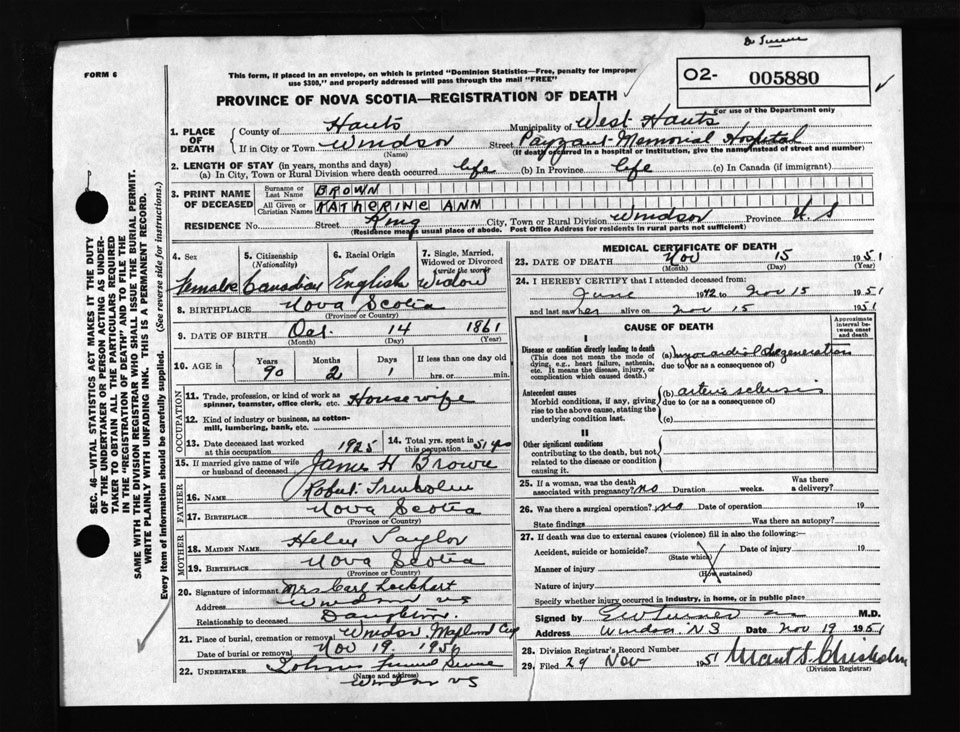 Dr Turner
FORM 6
This form, if placed in an envelope, on which is printed "Dominion Statistics—Free, penalty for improper
use $300," and properly addressed will pass through the mail "FREE"
O2- 005880
PROVINCE OF NOVA SCOTIA—REGISTRATION OF DEATH
For use of the Department only
1. PLACE OF DEATH
County of Hants Municipality of West Hants
If in City or Town Windsor Street Payzant Memorial Hospital
(Name) (If death occurred in a hospital or institution, give the name instead of street and number)
2. LENGTH OF STAY (in years, months and days)
(a) In City, Town or Rural Division where death occurred life (b) In Province life (c) In Canada (if immigrant)
3. PRINT NAME OF DECEASED
Surname or Last Name BROWN
All Given or Christian Names KATHERINE ANN
RESIDENCE No. Street King City, Town or Rural Division Windsor Province N S
(Residence means usual place of abode. Post Office Address for residents in rural parts not sufficient)
4. Sex 5. Citizenship (Nationality) 6. Racial Origin 7. Single, Married, Widowed or Divorced (write the word)
Female Canadian English Widow
8. BIRTHPLACE Nova Scotia
(Province or Country)
9. DATE OF BIRTH 14 1861
(Month) (Day) (Year)
10. AGE in Years Months Days If less than one day old
90 2 1 hrs. or min.
OCCUPATION
11. Trade, profession, or kind of work as spinner, teamster, office clerk, etc. Housewife
12. Kind of industry or business, as cotton-mill, lumbering, bank, etc.
13. Date deceased last worked at this occupation 1925 14. Total yrs. spent in this occupation 51 yrs
15. If married give name of wife or husband of deceased James H Brown
FATHER
16. NAME Robert Trenholm
17. BIRTHPLACE Nova Scotia
(Province or Country)
MOTHER
18. MAIDEN NAME Helen Taylor
19. BIRTHPLACE Nova Scotia
(Province or Country)
20. Signature of informant Mrs Carl Lockhart
Address Windsor NS
Relationship to deceased Daughter
21. Place of burial, cremation or removal Windsor Maplewood
Date of burial or removal Nov 19. 1950
22. UNDERTAKER
(Name and address)
Windsor NS
MEDICAL CERTIFICATE OF DEATH
23. DATE OF DEATH Nov 15 1951
(Month) (Day) (Year)
24. I HEREBY CERTIFY that I attended deceased from:
June 1942 to Nov 15 1951
and last saw her alive on Nov 15 1951
CAUSE OF DEATH
Approximate interval between onset and death
I
Disease or condition directly leading to death
(This does not mean the mode of dying, e.g., heart failure, asthenia, etc. It means the disease, injury, or complication which caused death.)
(a) myocardial degeneration
due to (or as a consequence of)
Antecedent causes
Morbid conditions, if any, giving rise to the above cause, stating the underlying condition last.
(b) arterio sclerosis
due to (or as a consequence of)
(c)
II
Other significant conditions
contributing to the death, but not related to the disease or condition causing it.
25. If a woman, was the death associated with pregnancy? no Duration weeks. Was there a delivery?
26. Was there a surgical operation? no Date of operation 19
State findings Was there an autopsy?
27. If death was due to external causes (violence) fill in also the following:—
Accident, suicide or homicide? Date of injury 19
(State which)
Manner of injury
(How sustained)
Nature of injury
Specify whether injury occurred in industry, in home, or in public place
Signed by E W Turner M.D.
Address Windsor. N S Date Nov 19 1951
28. Division Registrar's Record Number
29. Filed 29 Nov 1951 Chisholm
(Division Registrar)
SEC. 46—VITAL STATISTICS ACT MAKES IT THE DUTY
OF THE UNDERTAKER OR PERSON ACTING AS UNDER-
TAKER TO OBTAIN ALL THE PARTICULARS REQUIRED
IN THE "REGISTRATION OF DEATH" AND TO FILE THE
SAME WITH THE DIVISION REGISTRAR WHO SHALL ISSUE THE BURIAL PERMIT.
WRITE PLAINLY WITH UNFADING INK. THIS IS A PERMANENT RECORD.
Every item of information should be carefully supplied. (See reverse side for instructions.)